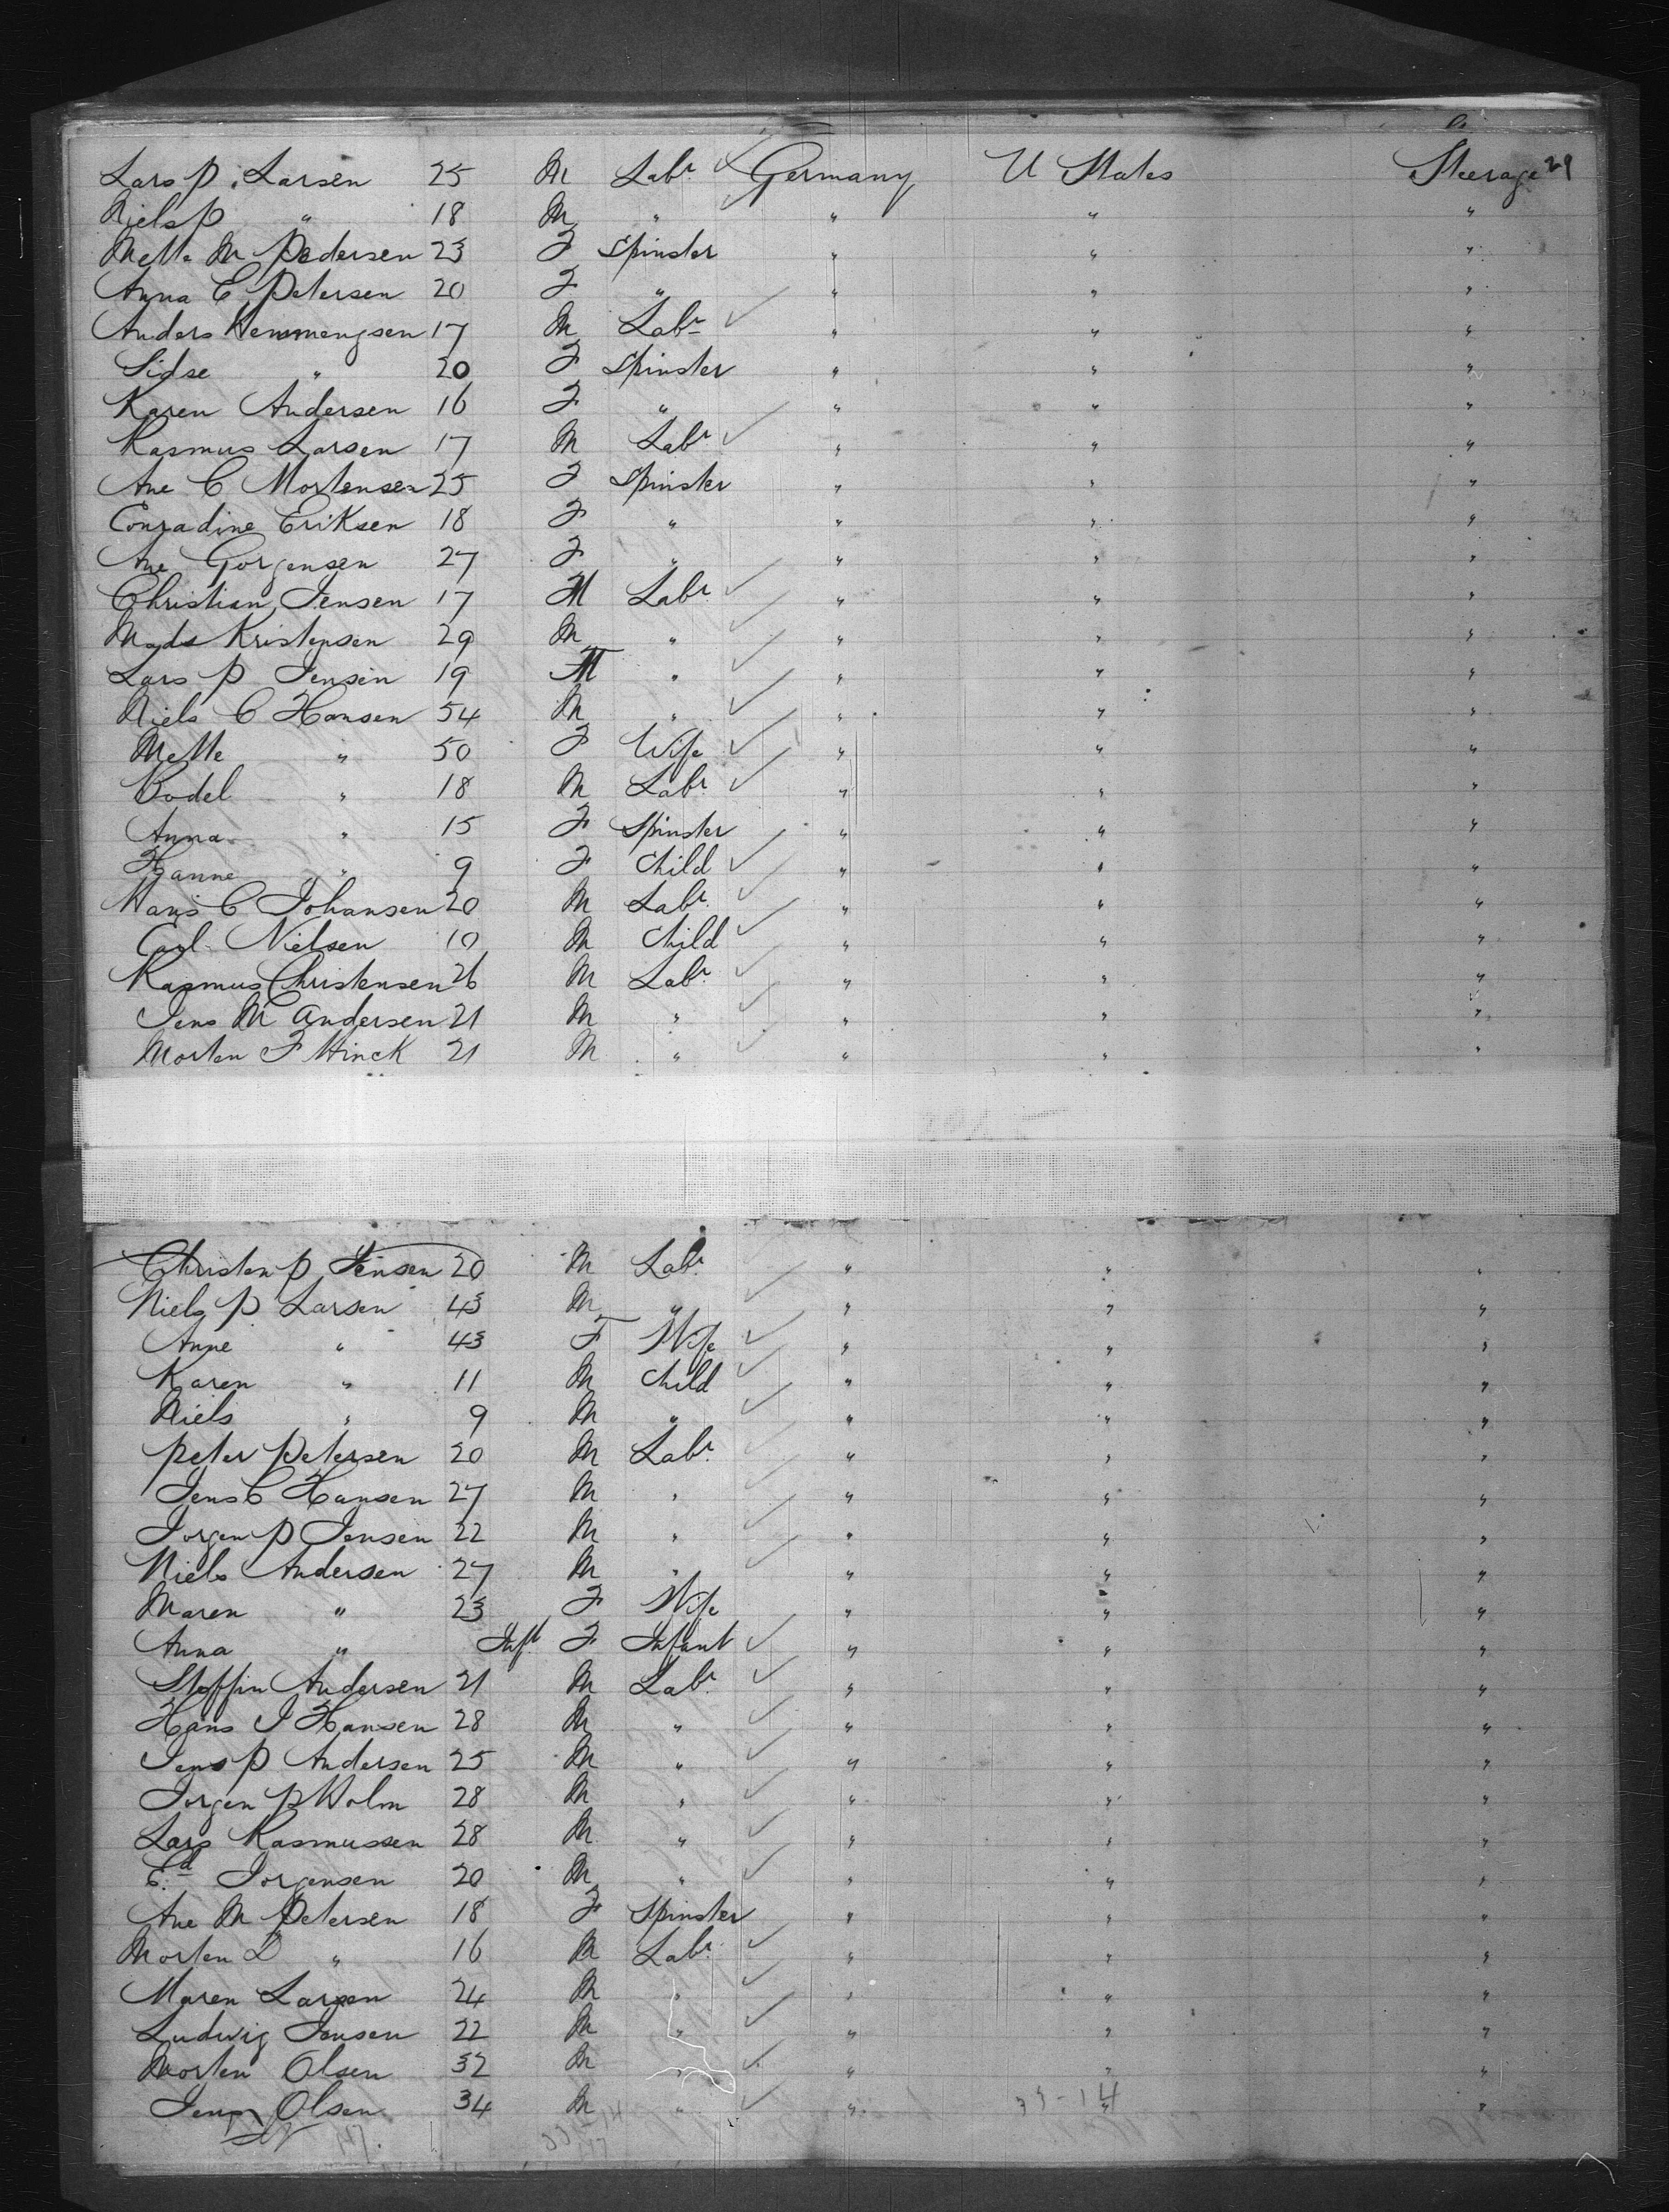 Lars P. Larsen 25 M Labr Germany U States Steerage 29
Niels P " 18 M " " " "
Mette M Pedersen 23 F Spinster " " "
Anna C Petersen 20 F " " " "
Anders Hemmengsen 17 M Labr " " "
Sidse " 20 F Spinster " " "
Karen Andersen 16 F " " " "
Rasmus Larsen 17 M Labr " " "
Ane C Mortensen 25 F Spinster " " "
Conradine Eriksen 18 F " " " "
Ane Gorgensen 27 F " " " "
Christian Jensen 17 M Labr " " "
Mads Kristensen 29 M " " " "
Lars P Jensen 19 M " " " "
Niels C Hansen 54 M " " " "
Mette " 50 F Wife " " "
Bodel " 18 M Labr " " "
Anna " 15 F Spinster " " "
Hanne " 9 F Child " " "
Hans C Johansen 20 M Labr " " "
Carl Nielsen 10 M Child " " "
Rasmus Christensen 26 M Labr " " "
Jens M Andersen 21 M " " " "
Morten F Hinck 21 M " " " "
Christen P Jensen 20 M Labr " " "
Niels P Larsen 43 M " " " "
Anne " 43 F Wife " " "
Karen " 11 M Child " " "
Niels " 9 M " " " "
Peter Petersen 20 M Labr " " "
Jens C Hansen 27 M " " " "
Jorgen P Jensen 22 M " " " "
Niels Andersen 27 M " " " "
Maren " 23 F Wife " " "
Anna " Inft F Infant " " "
Stoffin Andersen 21 M Labr " " "
Hans J Hansen 28 M " " " "
Jens P Andersen 25 M " " " "
Jorgen P Holm 28 M " " " "
Lars Rasmussen 28 M " " " "
Ed Jorgensen 20 M " " " "
Ane M Petersen 18 F Spinster " " "
Morten L " 16 M Labr " " "
Maren Larsen 24 M " " " "
Ludwig Jensen 22 M " " " "
Morten Olsen 32 M " " " "
Jens Olsen 34 M " " " "